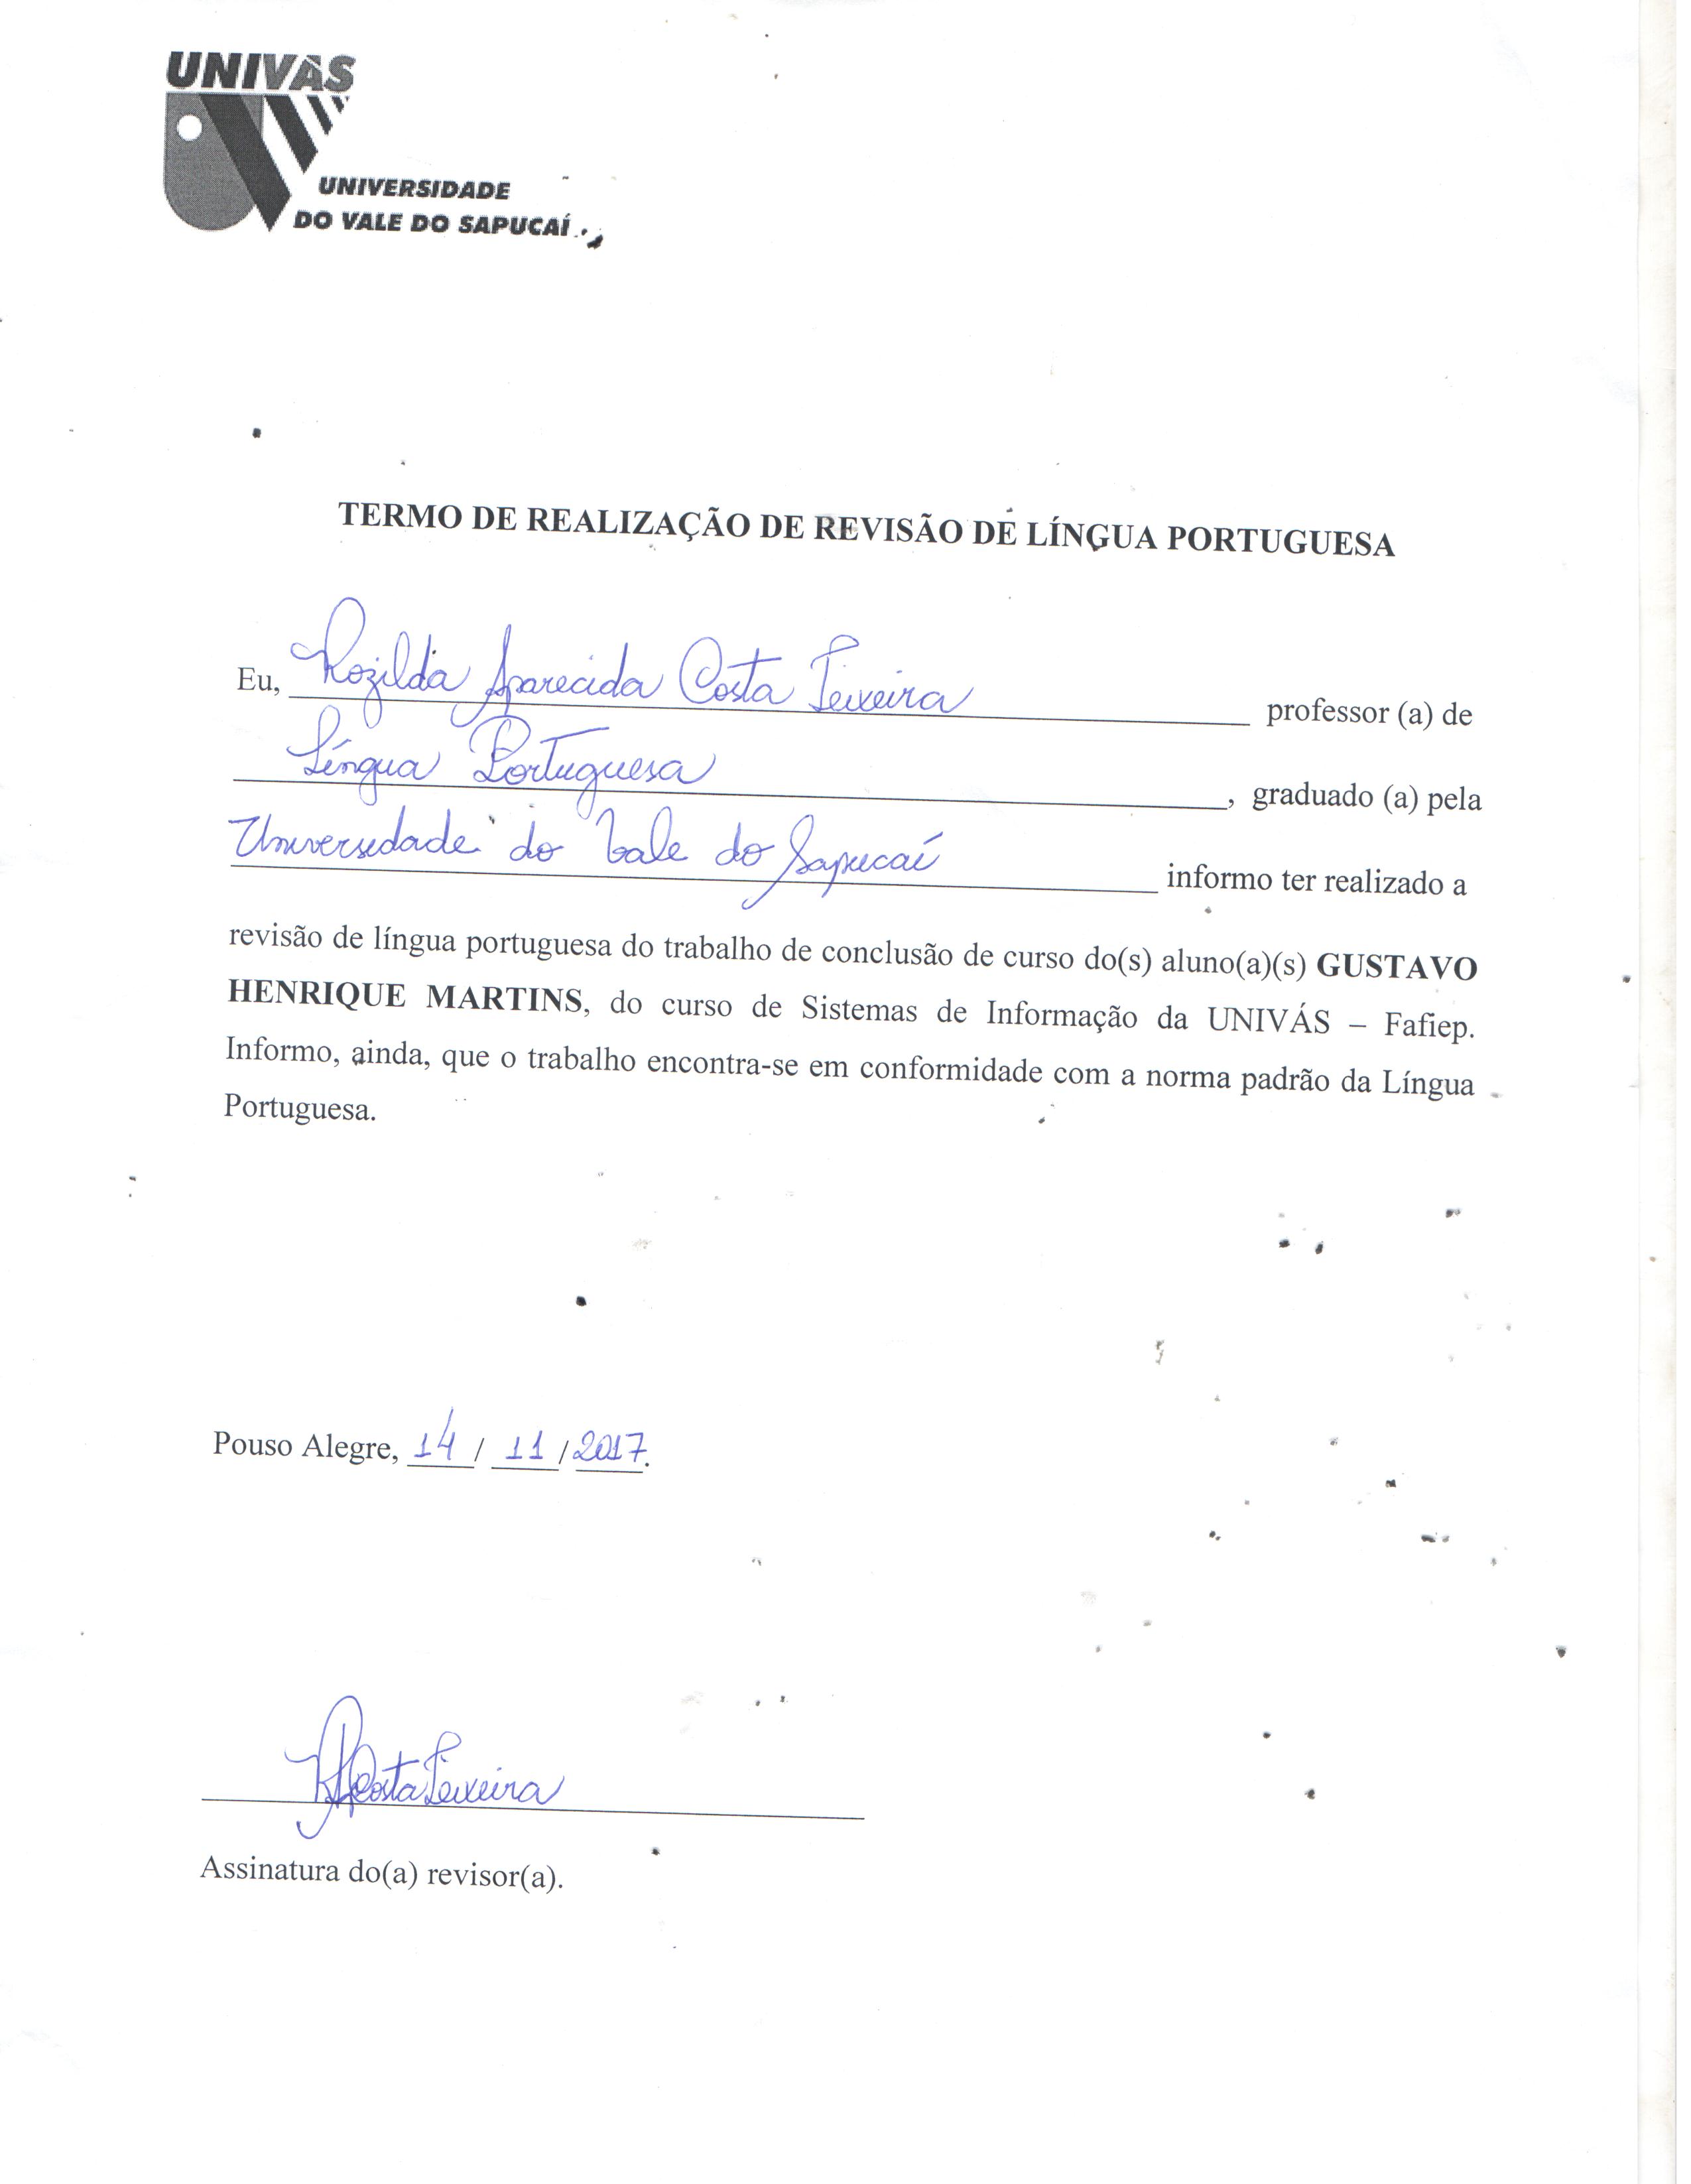 UNIVÁS
UNIVERSIDADE
DO VALE DO SAPUCAÍ
TERMO DE REALIZAÇÃO DE REVISÃO DE LÍNGUA PORTUGUESA
Eu, Rozilda Aparecida Costa Teixeira professor (a) de
Língua Portuguesa, graduado (a) pela
Universidade do Vale do Sapucaí informo ter realizado a
revisão de língua portuguesa do trabalho de conclusão de curso do(s) aluno(a)(s) GUSTAVO
HENRIQUE MARTINS, do curso de Sistemas de Informação da UNIVÁS – Fafiep.
Informo, ainda, que o trabalho encontra-se em conformidade com a norma padrão da Língua
Portuguesa.
Pouso Alegre, 14 / 11 / 2017.
RACosta Teixeira
Assinatura do(a) revisor(a).